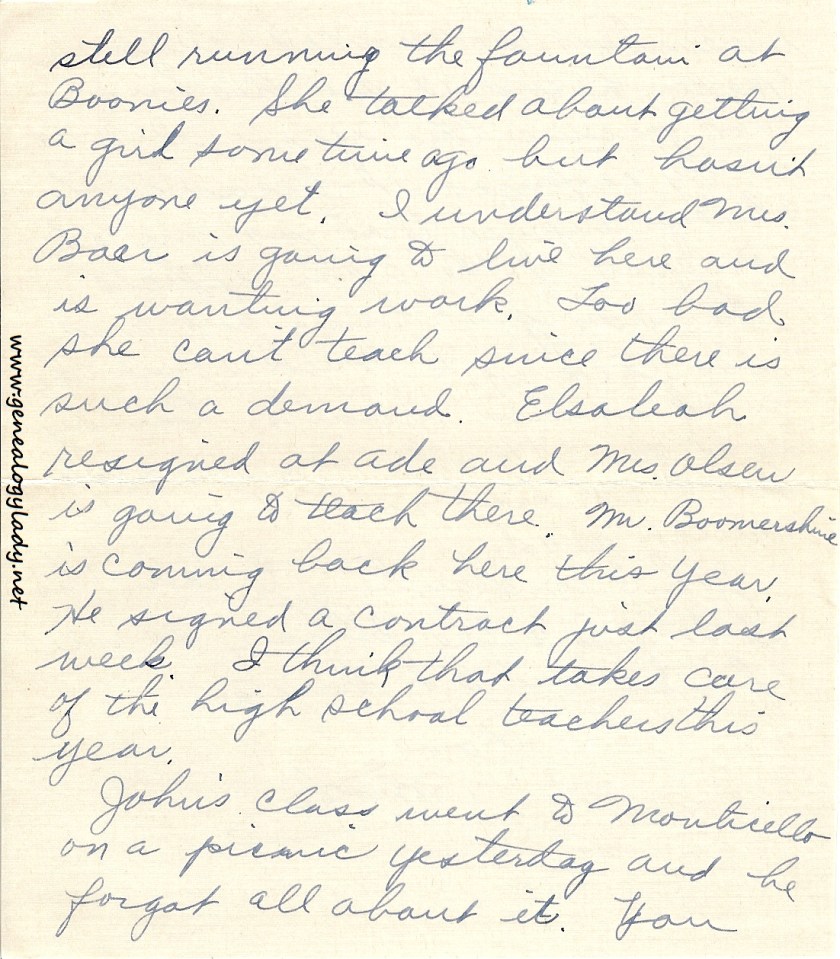 still running the fountain at
Boonies. She talked about getting
a girl some time ago but hasn't
anyone yet. I understand Mrs.
Baer is going to live here and
is wanting work. Too bad
she can't teach since there is
such a demand. Elsaleah
resigned at Ade and Mrs. Olsen
is going to teach there. Mr. Boomershine
is coming back here this year.
He signed a contract just last
week. I think that takes care
of the high school teachers this
year.
John's class went to Monticello
on a picnic yesterday and he
forgot all about it. You
www.genealogylady.net